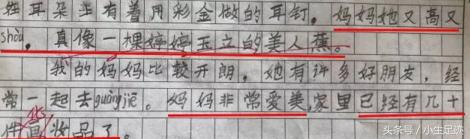 在耳朵上有着用彩金做的耳钉。妈妈她又高又
shòu，真像一棵婷婷玉立的美人蕉。
我的妈妈比较开朗，她有许多好朋友，经
常一起去guàngjiē。妈妈非常爱美，家里已经有几十
化
件画妆品了。
头条号／小生足迹